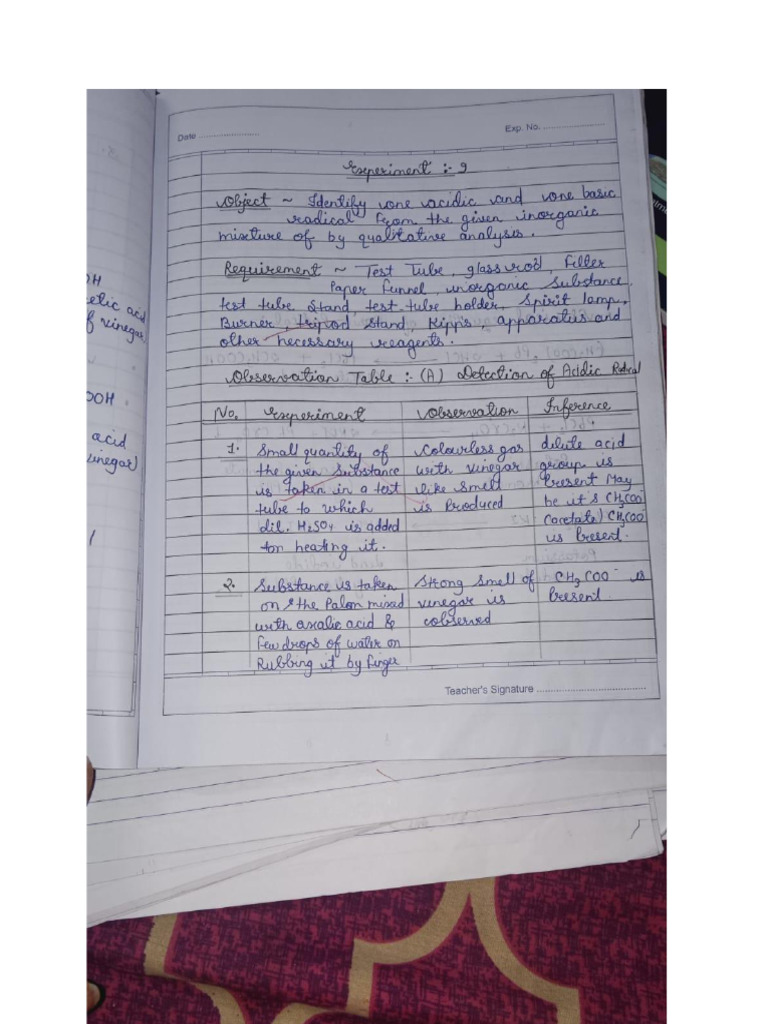 Date
Exp. No.
Experiment :- 9
Object ~ Identify one acidic and one basic
radical from the given inorganic
mixture of by qualitative analysis.
Requirement ~ Test Tube, glass rod, Filter
Paper funnel, inorganic Substance,
test tube Stand test-tube holder, Spirit lamp,
Burner, tripod stand, Kipp's apparatus and
other necessary reagents.
Observation Table :- (A) Detection of Acidic Radical
No. Experiment Observation Inference
1. Small quantity of Colourless gas dilute acid
the given Substance with vinegar group is
is taken in a test like smell Present May
tube to which is Produced be it's CH3COO
dil. H2SO4 is added (acetate) CH3COO
on heating it. is Present.
2. Substance is taken Strong smell of CH3COO- is
on the Palm mixed vinegar is Present.
with oxalic acid & observed
few drops of water on
Rubbing it by finger
Teacher's Signature
OH
etic acid
f vinegar
OOH
acid
vinegar)